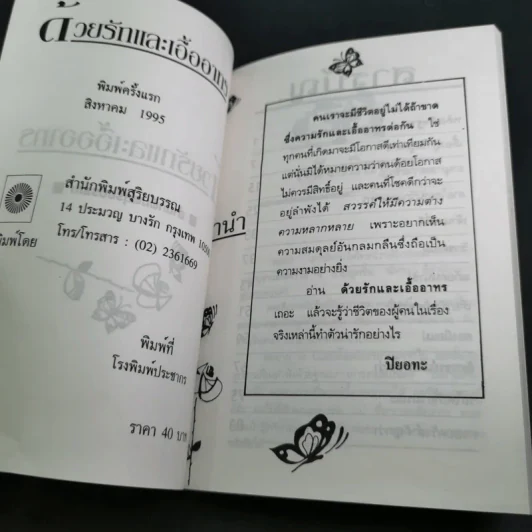 ด้วยรักและเอื้ออาทร
พิมพ์ครั้งแรก
สิงหาคม 1995
สำนักพิมพ์สุริยบรรณ
14 ประมวญ บางรัก กรุงเทพ
โทร/โทรสาร : (02) 2361669
พิมพ์ที่
โรงพิมพ์ประชากร
ราคา 40 บาท
คนเราจะมีชีวิตอยู่ไม่ได้ถ้าขาด
ซึ่งความรักและเอื้ออาทรต่อกัน ใช่
ทุกคนที่เกิดมาจะมีโอกาสดีเท่าเทียมกัน
แต่นั่นมิได้หมายความว่าคนด้อยโอกาส
ไม่ควรมีสิทธิ์อยู่ และคนที่โชคดีกว่าจะ
อยู่ลำพังได้ สวรรค์ให้มีความต่าง
ความหลากหลาย เพราะอยากเห็น
ความสมดุลย์อันกลมกลืนซึ่งถือเป็น
ความงามอย่างยิ่ง
อ่าน ด้วยรักและเอื้ออาทร
เถอะ แล้วจะรู้ว่าชีวิตของผู้คนในเรื่อง
จริงเหล่านี้ทำตัวน่ารักอย่างไร
ปิยอทะ